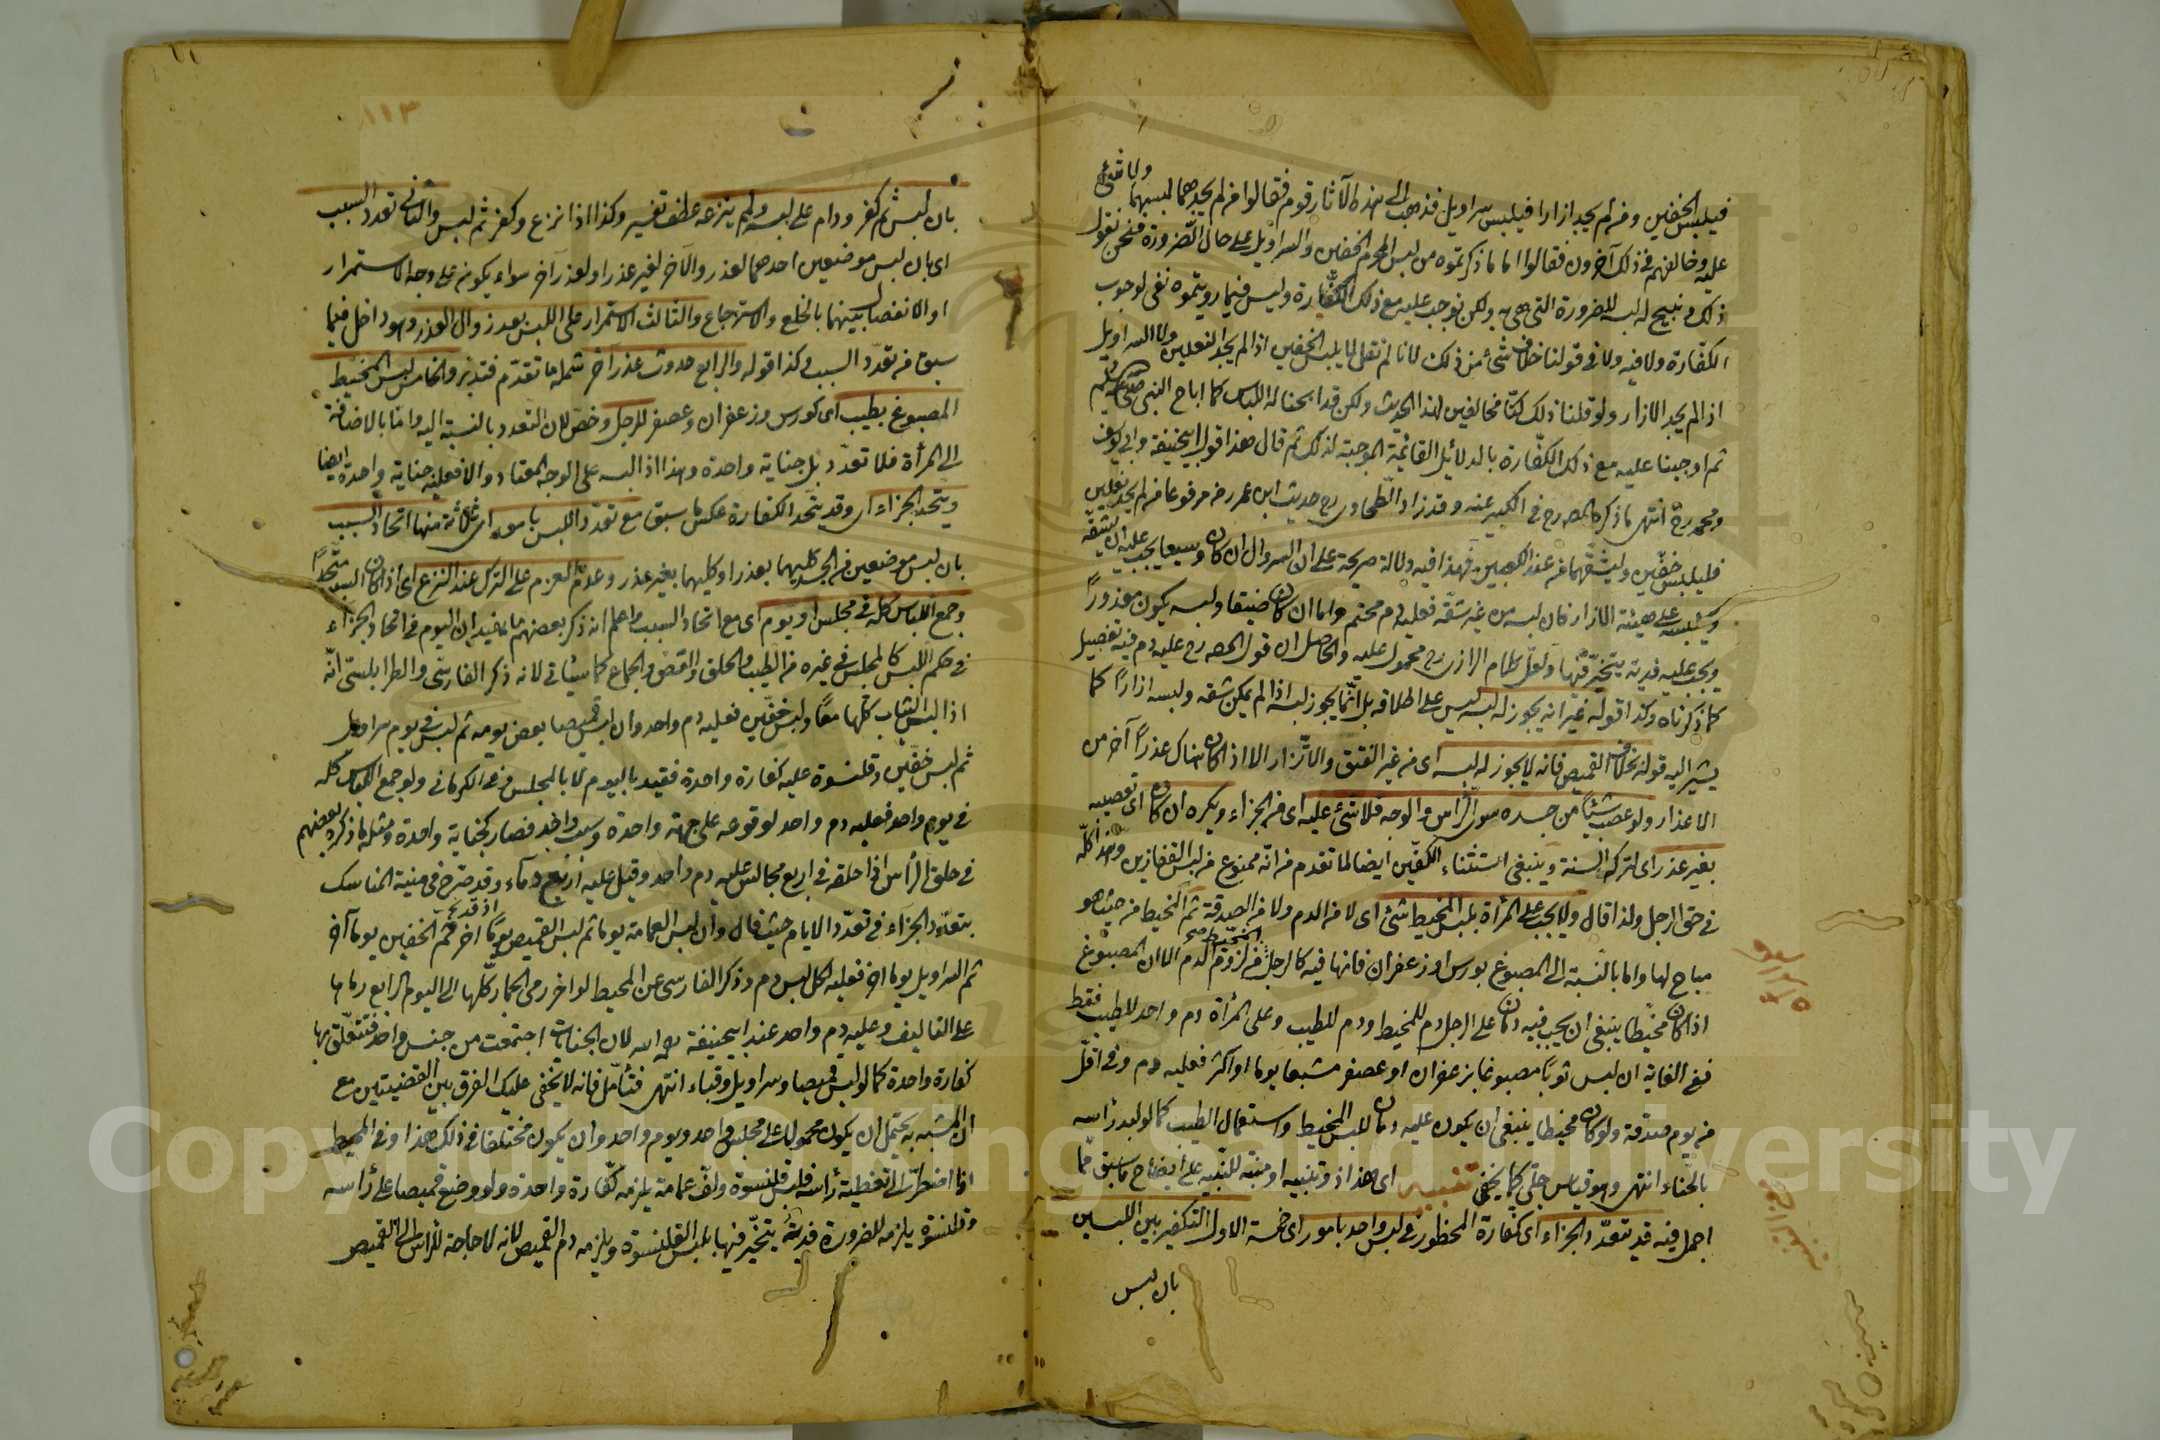 فيلبس الخفين ومن لم يجد ازارا فيلبس سراويل فذهب الى هذه الآثار قوم فقالوا من لم يجدهما لبسهما ولا شئ
عليه وخالفهم في ذلك آخرون فقالوا اما ما ذكرتموه من لبس المحرم الخفين والسراويل على حال الضرورة فنحن نقول
ذلك ونبيح له لبسه للضرورة التي هي به ولكن نوجب عليه مع ذلك الكفارة وليس فيما رويتموه نفي لوجوب
الكفارة ولا فيه ولا في قولنا خلاف شئ من ذلك لانا لم نقل لا يلبس الخفين اذا لم يجد النعلين ولا السراويل
اذا لم يجد الازار ولو قلنا ذلك كنا مخالفين لهذا الحديث ولكن قد ابحنا له اللباس كما اباح النبي صلى الله عليه وسلم
ثم اوجبنا عليه مع ذلك الكفارة بالدلائل القائمة الموجبة لذلك ثم قال هذا قول ابيحنيفة وابي يوسف
ومحمد رح انتهى ما ذكره المصه رح في الكبير عنه وقد زاد الطحاوي رح حديث ابن عمر رضه مرفوعا من لم يجد نعلين
فليلبس خفين وليشقهما من عند الكعبين فهذا فيه دلالة صريحة على ان السروال ان كان وسيعا يجب عليه ان يشقه
ويلبسه على هيئة الازار فان لبسه من غير شقه فعليه دم محتم واما ان كان ضيقا ولبسه يكون معذورا
ويجب عليه فدية يتخير فيها ولعل كلام الرازي رح محمول عليه والحاصل ان قول المصه رح عليه دم فيه تفصيل
كما ذكرناه وكذا قوله غير انه يجوز له لبسه ليس على اطلاقه بل انما يجوز لبسه اذا لم يمكن شقه ولبسه ازارا كما
يشير اليه قوله بخلاف القميص فانه لا يجوز له لبسه اى من غير الفتق والاتزار الا اذا كان هناك عذرا آخر من
الاعذار ولو عصب شيئا من جسده سوى الرأس والوجه فلا شئ عليه اى من الجزاء ويكره ان كان اى تعصيبه
بغير عذر اى لتركه السنة وينبغي استثناء الكفين ايضا لما تقدم من انه ممنوع من لبس القفازين وهذا كله
في حق الرجل ولذا قال ولا يجب على المرأة بلبس المخيط شئ اى لا من الدم ولا من الصدقة ثم المخيط من حيث هو
مباح لها واما بالنسبة الى المصبوغ بورس او زعفران فانها فيه كالرجل من لزوم الدم الا ان المصبوغ
المخيط صح
اذا كان مخيطا ينبغي ان يجب فيه دمان على الرجل دم للمخيط ودم للطيب وعلى المرأة دم واحد للطيب فقط
ففي الغاية ان لبس ثوبا مصبوغا بزعفران او عصفر مشبعا يوما او اكثر فعليه دم وفي اقل
من يوم صدقة ولو كان مخيطا ينبغي ان يكون عليه دمان للبس المخيط واستعمال الطيب كما لو لبد رأسه
بالحناء انتهى وهو قياس جلي كما لا يخفى تنبيه اى هذا ذو تنبيه او منبه للنبيه على ايضاح ما سبق مما
اجمل فيه قد يتعدد الجزاء اى كفارة المحظور في لبس واحد بامور اى خمسة الاول التكفير بين اللبسين
بان لبس
١١٣
بان لبس ثم كفر ودام على لبسه ولم ينزعه عطف تفسير وكذا اذا نزع وكفر ثم لبس والثاني تعدد السبب
اى بان لبس موضعين احدهما لعذر والآخر لغير عذر او لعذر آخر سواء يكون على وجه الاستمرار
او الانفصال بينهما بالخلع والاسترجاع والثالث الاستمرار على اللبس بعد زوال العذر وهو داخل فيما
سبق من تعدد السبب وكذا قوله والرابع حدوث عذر آخر شمله ما تقدم فتدبر والخامس لبس المخيط
المصبوغ بطيب اى كورس وزعفران وعصفر للرجل وخص لان التعدد بالنسبة اليه واما بالاضافة
الى المرأة فلا تعدد بل جناية واحدة وهذا اذا لبسه على الوجه المعتاد والا فعليه جناية واحدة ايضا
ويتحد الجزاء اى وقد يتحد الكفارة عكس ما سبق مع تعدد اللبس بامور اى ثلاثة منها اتحاد السبب
بان لبس موضعين من الجسد كليهما بعذر او كليهما بغير عذر وعدم العزم على الترك عند النزع اى اذا كان السبب متحدا
وجمع اللباس كله في مجلس او يوم اى مع اتحاد السبب واعلم انه ذكر بعضهم ما يفيد ان اليوم في اتحاد الجزاء
في حكم اللبس كالمجلس في غيره من الطيب والحلق والقص والجماع كما سيأتي لانه ذكر الفارسي والطرابلسي انه
اذا لبس الثياب كلها معا ولبس خفين فعليه دم واحد وان لبس قميصا بعض يومه ثم لبس في يوم سراويل
ثم لبس خفين وقلنسوة عليه كفارة واحدة فقيد باليوم لا بالمجلس وفي الكرماني ولو جمع اللباس كله
في يوم واحد فعليه دم واحد لوقوعه على جهة واحدة وسبب واحد فصار كجناية واحدة ومثله ما ذكره بعضهم
في حلق الرأس اذا حلقه في اربع مجالس عليه دم واحد وقيل عليه اربع دماء وقد صرح في منية المناسك
بتعدد الجزاء في تعدد الايام حيث قال وان لبس العمامة يوما ثم لبس القميص يوما آخر ثم الخفين يوما آخر
ثم السراويل يوما آخر فعليه لكل لبس دم وذكر الفارسي عن المحيط لو اخر رمي الجمار كلها الى اليوم الرابع رماها
على التأليف وعليه دم واحد عند ابيحنيفة رحمه الله لان الجنايات اجتمعت من جنس واحد فتتعلق بها
كفارة واحدة كما لو لبس قميصا وسراويل وقباء انتهى فتأمل فانه لا يخفى عليك الفرق بين القضيتين مع
ان المشبه به يحتمل ان يكون محمولا على مجلس واحد ويوم واحد وان يكون مختلفا في ذلك هذا وفي المحيط
اذا اضطر الى تغطية رأسه فلبس قلنسوة ولف عمامة يلزمه كفارة واحدة ولو وضع قميصا على رأسه
وقلنسوة يلزمه للضرورة فدية يتخير فيها بلبس القلنسوة ويلزمه دم القميص لانه لا حاجة للرأس الى القميص
Copyright © King Saud University